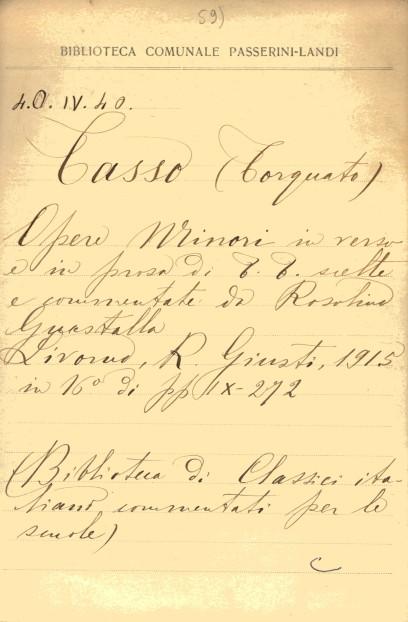 59)
BIBLIOTECA COMUNALE PASSERINI-LANDI
4.O.IV.40.
Tasso (Torquato)
Opere Minori in verso
e in prosa di T. T. scelte
e commentate da Rosolino
Guastalla
Livorno, R. Giusti, 1915
in 16° di pp IX-272
(Biblioteca di Classici ita-
liani commentati per le
scuole)
C